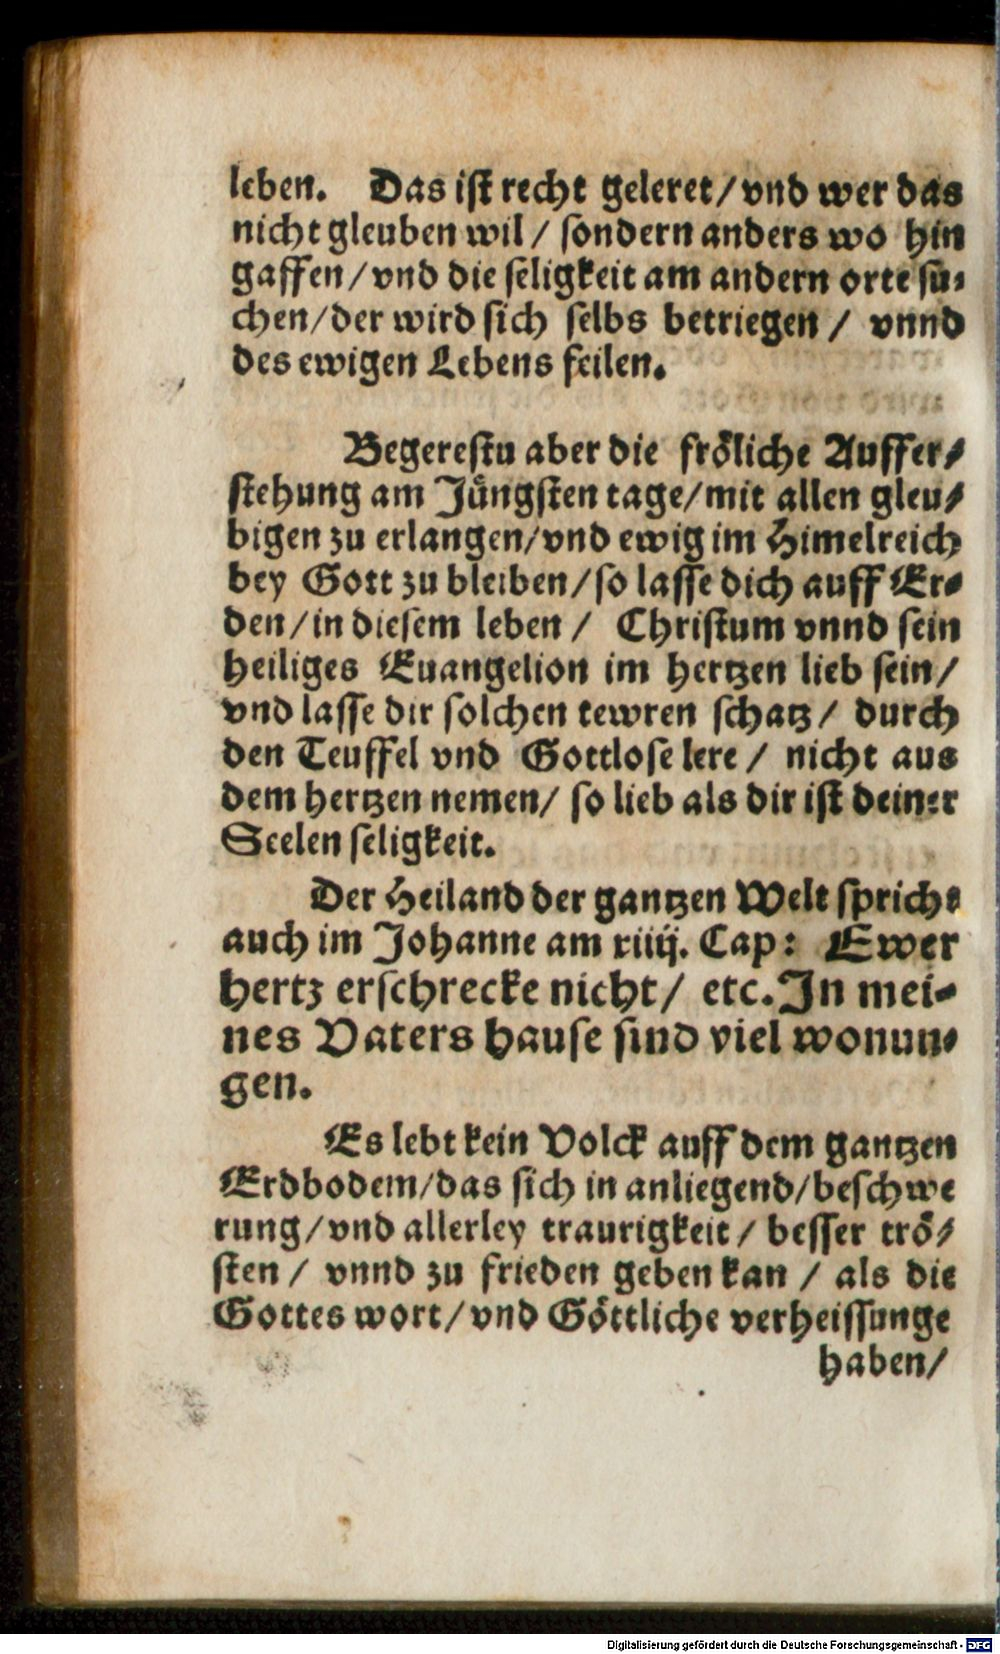 leben. Das ist recht geleret/vnd wer das
nicht gleuben wil/ sondern anders wo hin
gaffen/vnd die seligkeit am andern orte su-
chen/der wird sich selbs betriegen/ vnnd
des ewigen Lebens feilen.
Begerestu aber die fröliche Auffer-
stehung am Jüngsten tage/mit allen gleu-
bigen zu erlangen/vnd ewig im Himelreich
bey Gott zu bleiben/so lasse dich auff Er-
den/in diesem leben/ Christum vnnd sein
heiliges Euangelion im hertzen lieb sein/
vnd lasse dir solchen tewren schatz/ durch
den Teuffel vnd Gottlose lere/ nicht aus
dem hertzen nemen/ so lieb als dir ist deiner
Seelen seligkeit.
Der Heiland der gantzen Welt spricht
auch im Johanne am xiiij. Cap: Ewer
hertz erschrecke nicht/ etc. In mei-
nes Vaters hause sind viel wonun-
gen.
Es lebt kein Volck auff dem gantzen
Erdbodem/das sich in anliegend/beschwe
rung/vnd allerley traurigkeit/ besser trö-
sten/ vnnd zu frieden geben kan/ als die
Gottes wort/vnd Göttliche verheissunge
haben/
Digitalisierung gefördert durch die Deutsche Forschungsgemeinschaft - DFG